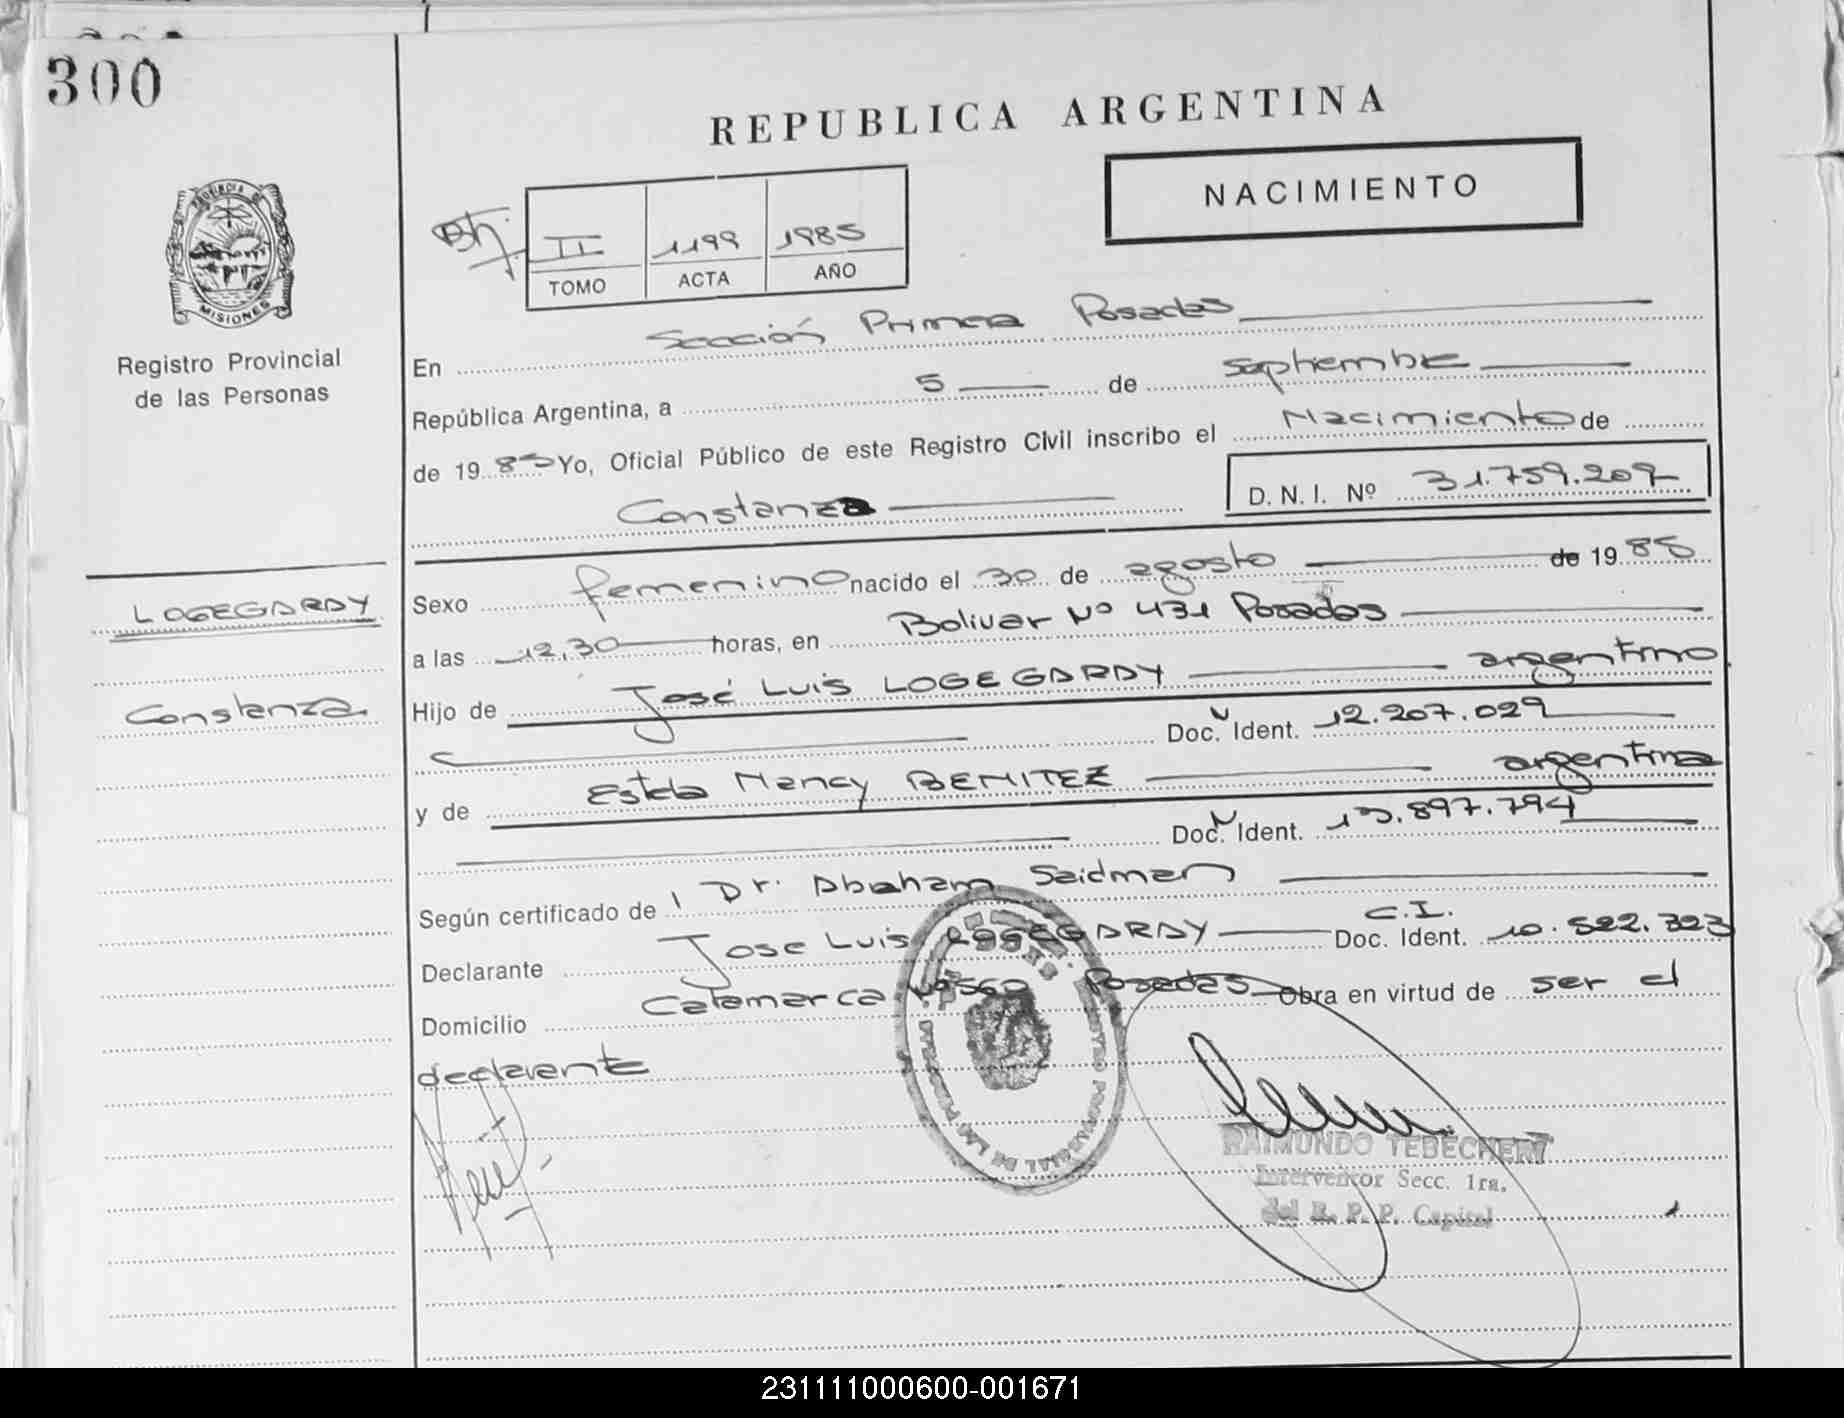 300
REPUBLICA ARGENTINA
NACIMIENTO
II 1199 1985
TOMO ACTA AÑO
PROVINCIA DE
MISIONES
Registro Provincial
de las Personas
En Sección Primera Posadas
República Argentina, a 5 de septiembre
de 1985 Yo, Oficial Público de este Registro Civil inscribo el Nacimiento de
Constanza D. N. I. Nº 31.759.207
LOGEGARAY
Constanza
Sexo femenino nacido el 30 de agosto de 1985
a las 12,30 horas, en Bolivar Nº 431 Posadas
Hijo de José Luis LOGEGARAY argentino
Doc. Ident. 12.207.029
y de Estela Nancy BENITEZ argentina
Doc. Ident. 13.897.794
Según certificado de Dr. Abraham Saidman
Declarante Jose Luis LOGEGARAY C.I. Doc. Ident. 10.522.323
Domicilio Catamarca Posadas Obra en virtud de ser el
declarante
RAIMUNDO TEBECHERY
Interventor Secc. 1ra.
del R. P. P. Capital
231111000600-001671